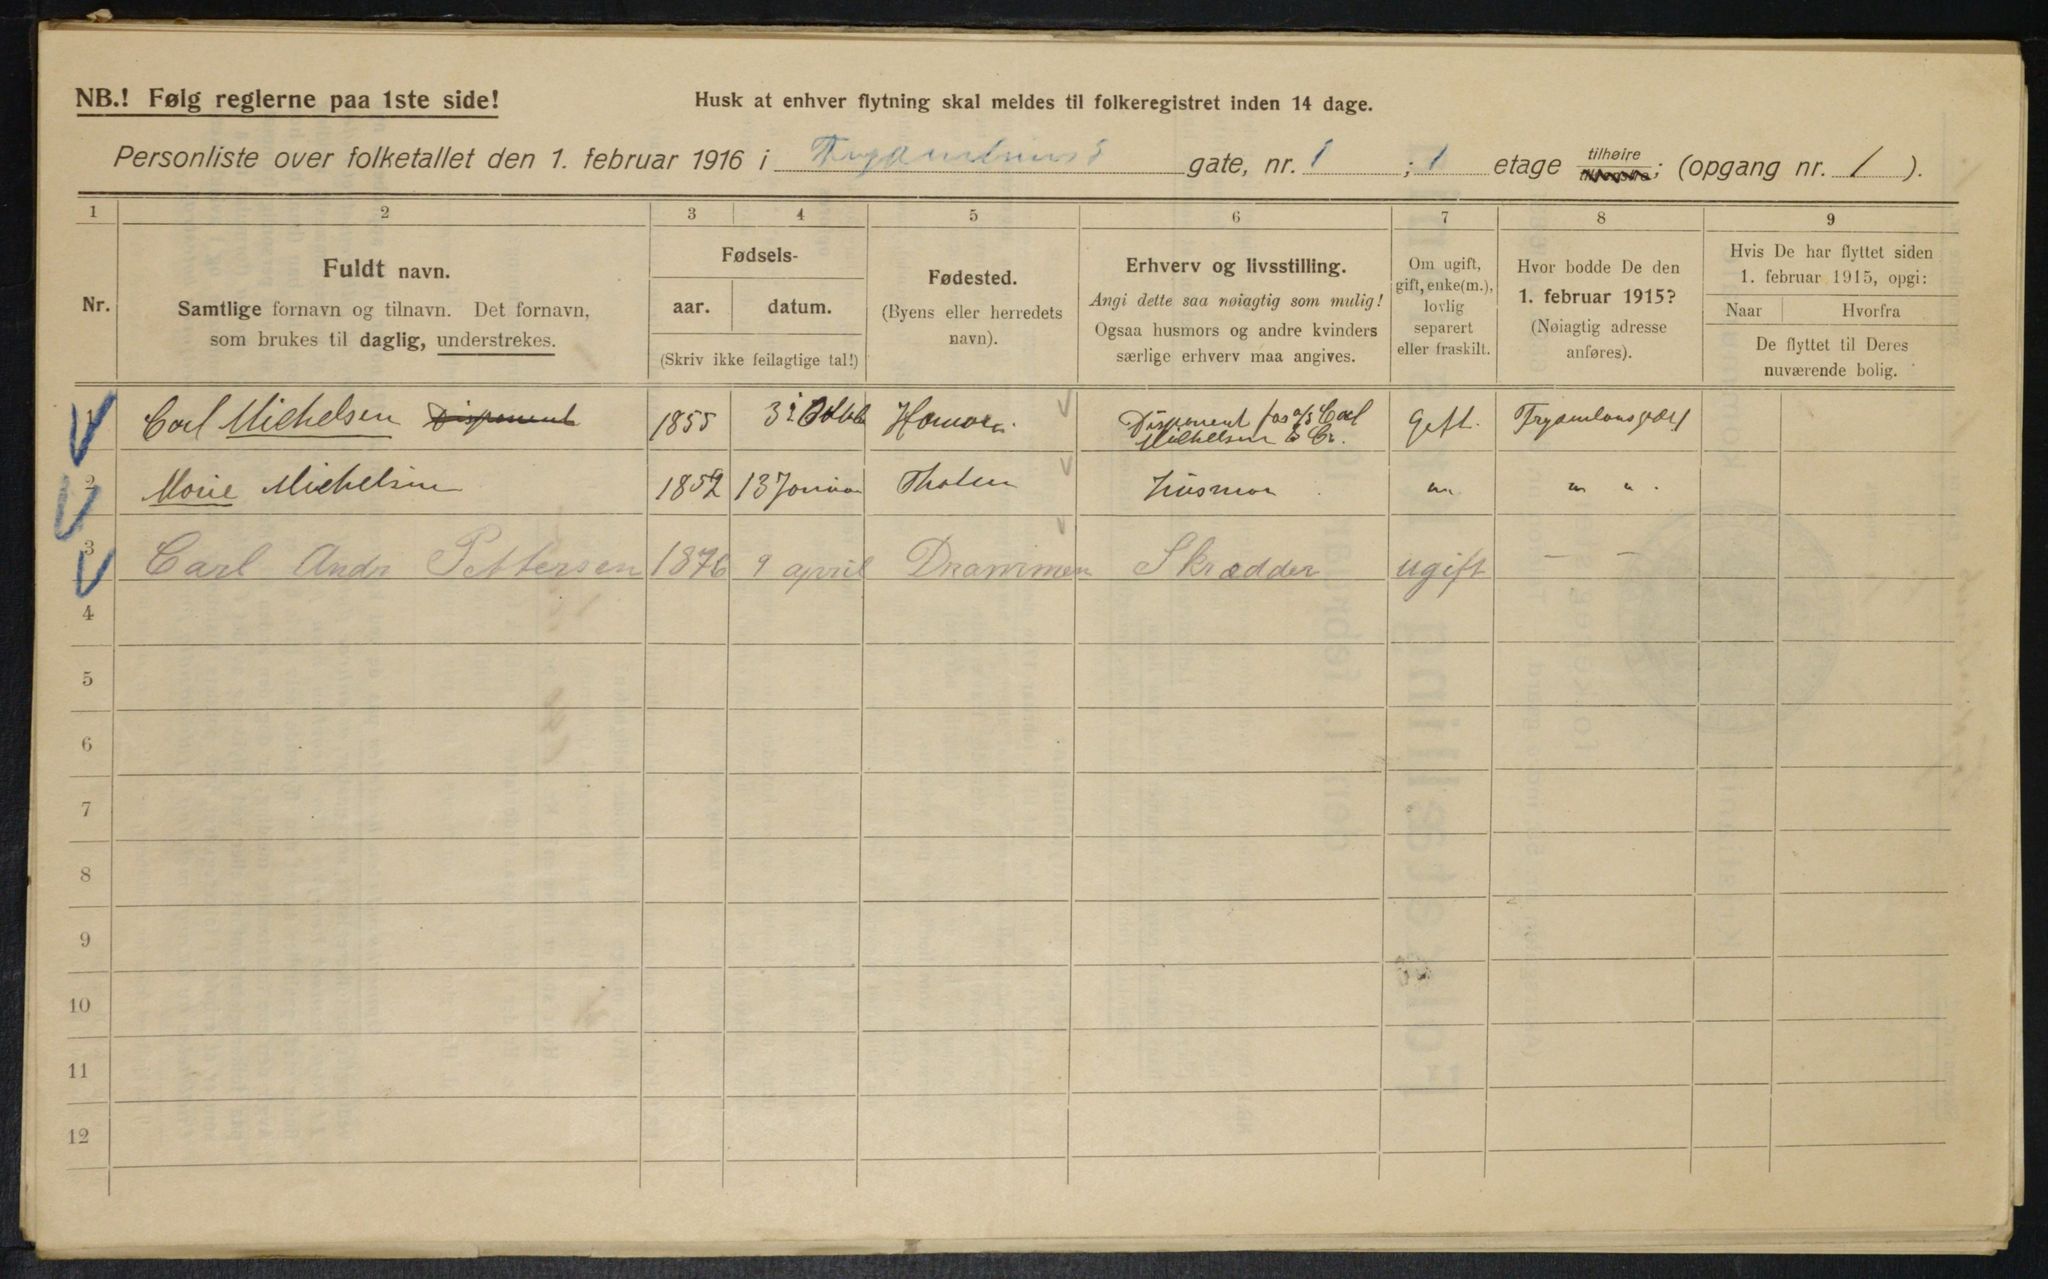 NB.! Følg reglerne paa 1ste side!
Husk at enhver flytning skal meldes til folkeregistret inden 14 dage.
Personliste over folketallet den 1. februar 1916 i gate, nr. 1 ; 1 etage tilhøire ; (opgang nr. 1 ).
1 2 3 4 5 6 7 8 9
Nr.
Fuldt navn.
Samtlige fornavn og tilnavn. Det fornavn,
som brukes til daglig, understrekes.
Fødsels-
aar. datum.
(Skriv ikke feilagtige tal!)
Fødested.
(Byens eller herredets
navn).
Erhverv og livsstilling.
Angi dette saa nøiagtig som mulig!
Ogsaa husmors og andre kvinders
særlige erhverv maa angives.
Om ugift,
gift, enke(m.),
lovlig
separert
eller fraskilt.
Hvor bodde De den
1. februar 1915?
(Nøiagtig adresse
anføres).
Hvis De har flyttet siden
1. februar 1915, opgi:
Naar Hvorfra
De flyttet til Deres
nuværende bolig.
1 Carl Michelsen Disponent 1855 Hamar Disponent for a/s Carl
Michelsen & Co. Gift.
2 Marie Michelsen 1852 13 Januar Husmor " " "
3 Carl Andr Pettersen 1876 9 april Drammen Skrædder ugift — —
4
5
6
7
8
9
10
11
12